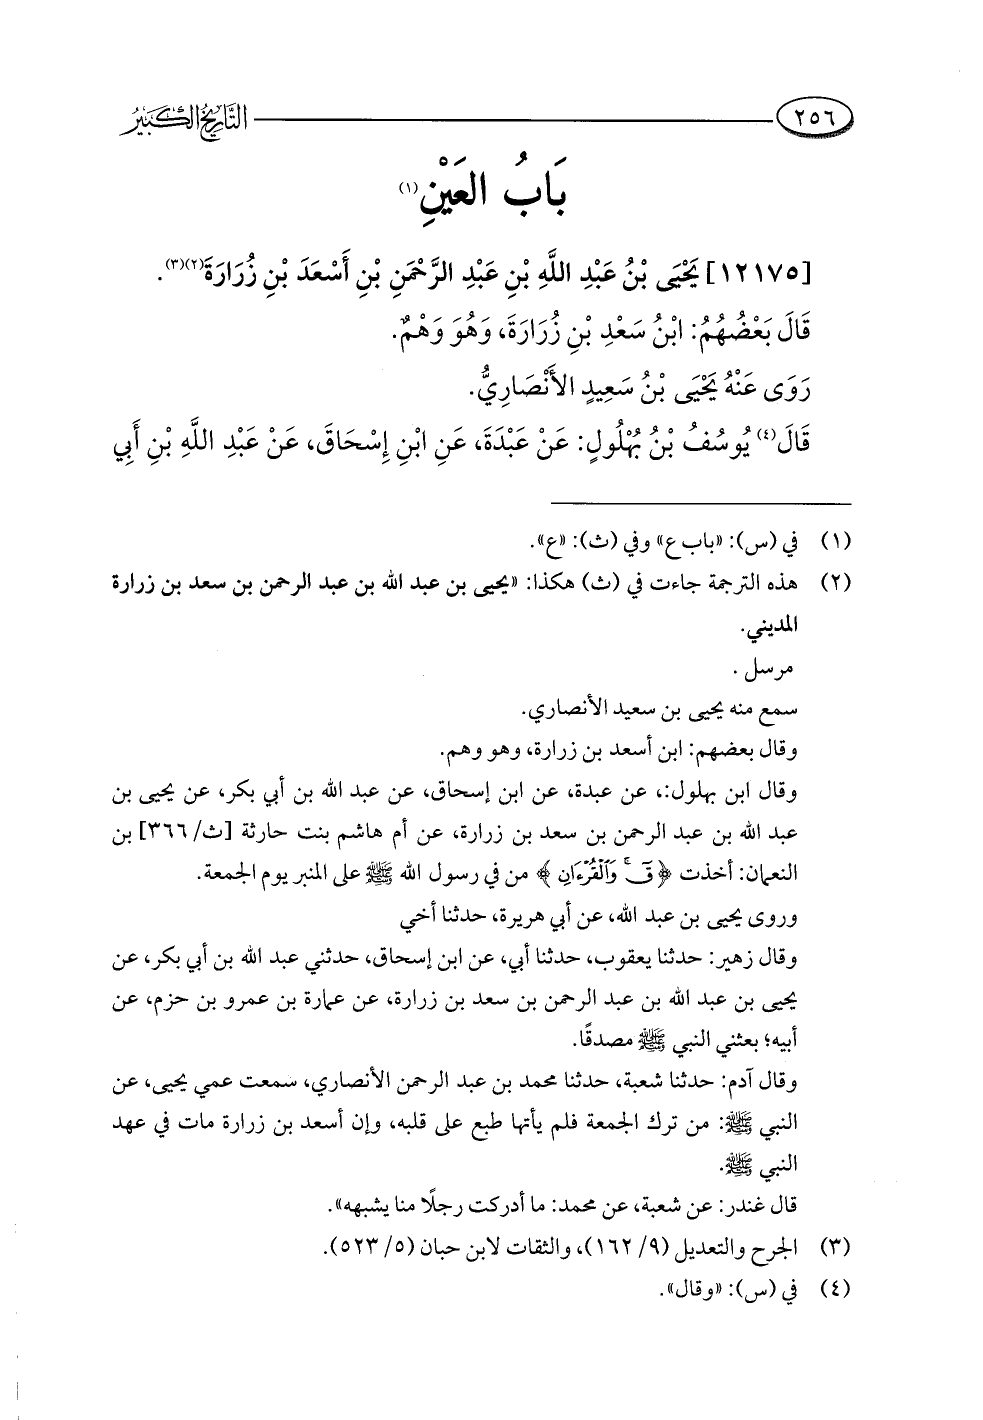 ٢٥٦ التَّارِيخُ الكَبِيرُ
بَابُ العَيْنِ(١)
[١٢١٧٥] يَحْيَى بْنُ عَبْدِ اللَّهِ بْنِ عَبْدِ الرَّحْمَنِ بْنِ أَسْعَدَ بْنِ زُرَارَةَ(٢)(٣).
قَالَ بَعْضُهُمُ: ابْنُ سَعْدِ بْنِ زُرَارَةَ، وَهُوَ وَهْمٌ.
رَوَى عَنْهُ يَحْيَى بْنُ سَعِيدٍ الأَنْصَارِيُّ.
قَالَ(٤) يُوسُفُ بْنُ بُهْلُولٍ: عَنْ عَبْدَةَ، عَنِ ابْنِ إِسْحَاقَ، عَنْ عَبْدِ اللَّهِ بْنِ أَبِي
(١) في (س): «باب ع» وفي (ث): «ع».
(٢) هذه الترجمة جاءت في (ث) هكذا: «يحيى بن عبد الله بن عبد الرحمن بن سعد بن زرارة
المديني.
مرسل .
سمع منه يحيى بن سعيد الأنصاري.
وقال بعضهم: ابن أسعد بن زرارة، وهو وهم.
وقال ابن بهلول:، عن عبدة، عن ابن إسحاق، عن عبد الله بن أبي بكر، عن يحيى بن
عبد الله بن عبد الرحمن بن سعد بن زرارة، عن أم هاشم بنت حارثة [ث/ ٣٦٦] بن
النعمان: أخذت ﴿قٓۚ وَٱلۡقُرۡءَانِ﴾ من في رسول الله ﷺ على المنبر يوم الجمعة.
وروى يحيى بن عبد الله، عن أبي هريرة، حدثنا أخي
وقال زهير: حدثنا يعقوب، حدثنا أبي، عن ابن إسحاق، حدثني عبد الله بن أبي بكر، عن
يحيى بن عبد الله بن عبد الرحمن بن سعد بن زرارة، عن عمارة بن عمرو بن حزم، عن
أبيه؛ بعثني النبي ﷺ مصدقًا.
وقال آدم: حدثنا شعبة، حدثنا محمد بن عبد الرحمن الأنصاري، سمعت عمي يحيى، عن
النبي ﷺ: من ترك الجمعة فلم يأتها طبع على قلبه، وإن أسعد بن زرارة مات في عهد
النبي ﷺ.
قال غندر: عن شعبة، عن محمد: ما أدركت رجلًا منا يشبهه».
(٣) الجرح والتعديل (٩/ ١٦٢)، والثقات لابن حبان (٥/ ٥٢٣).
(٤) في (س): «وقال».